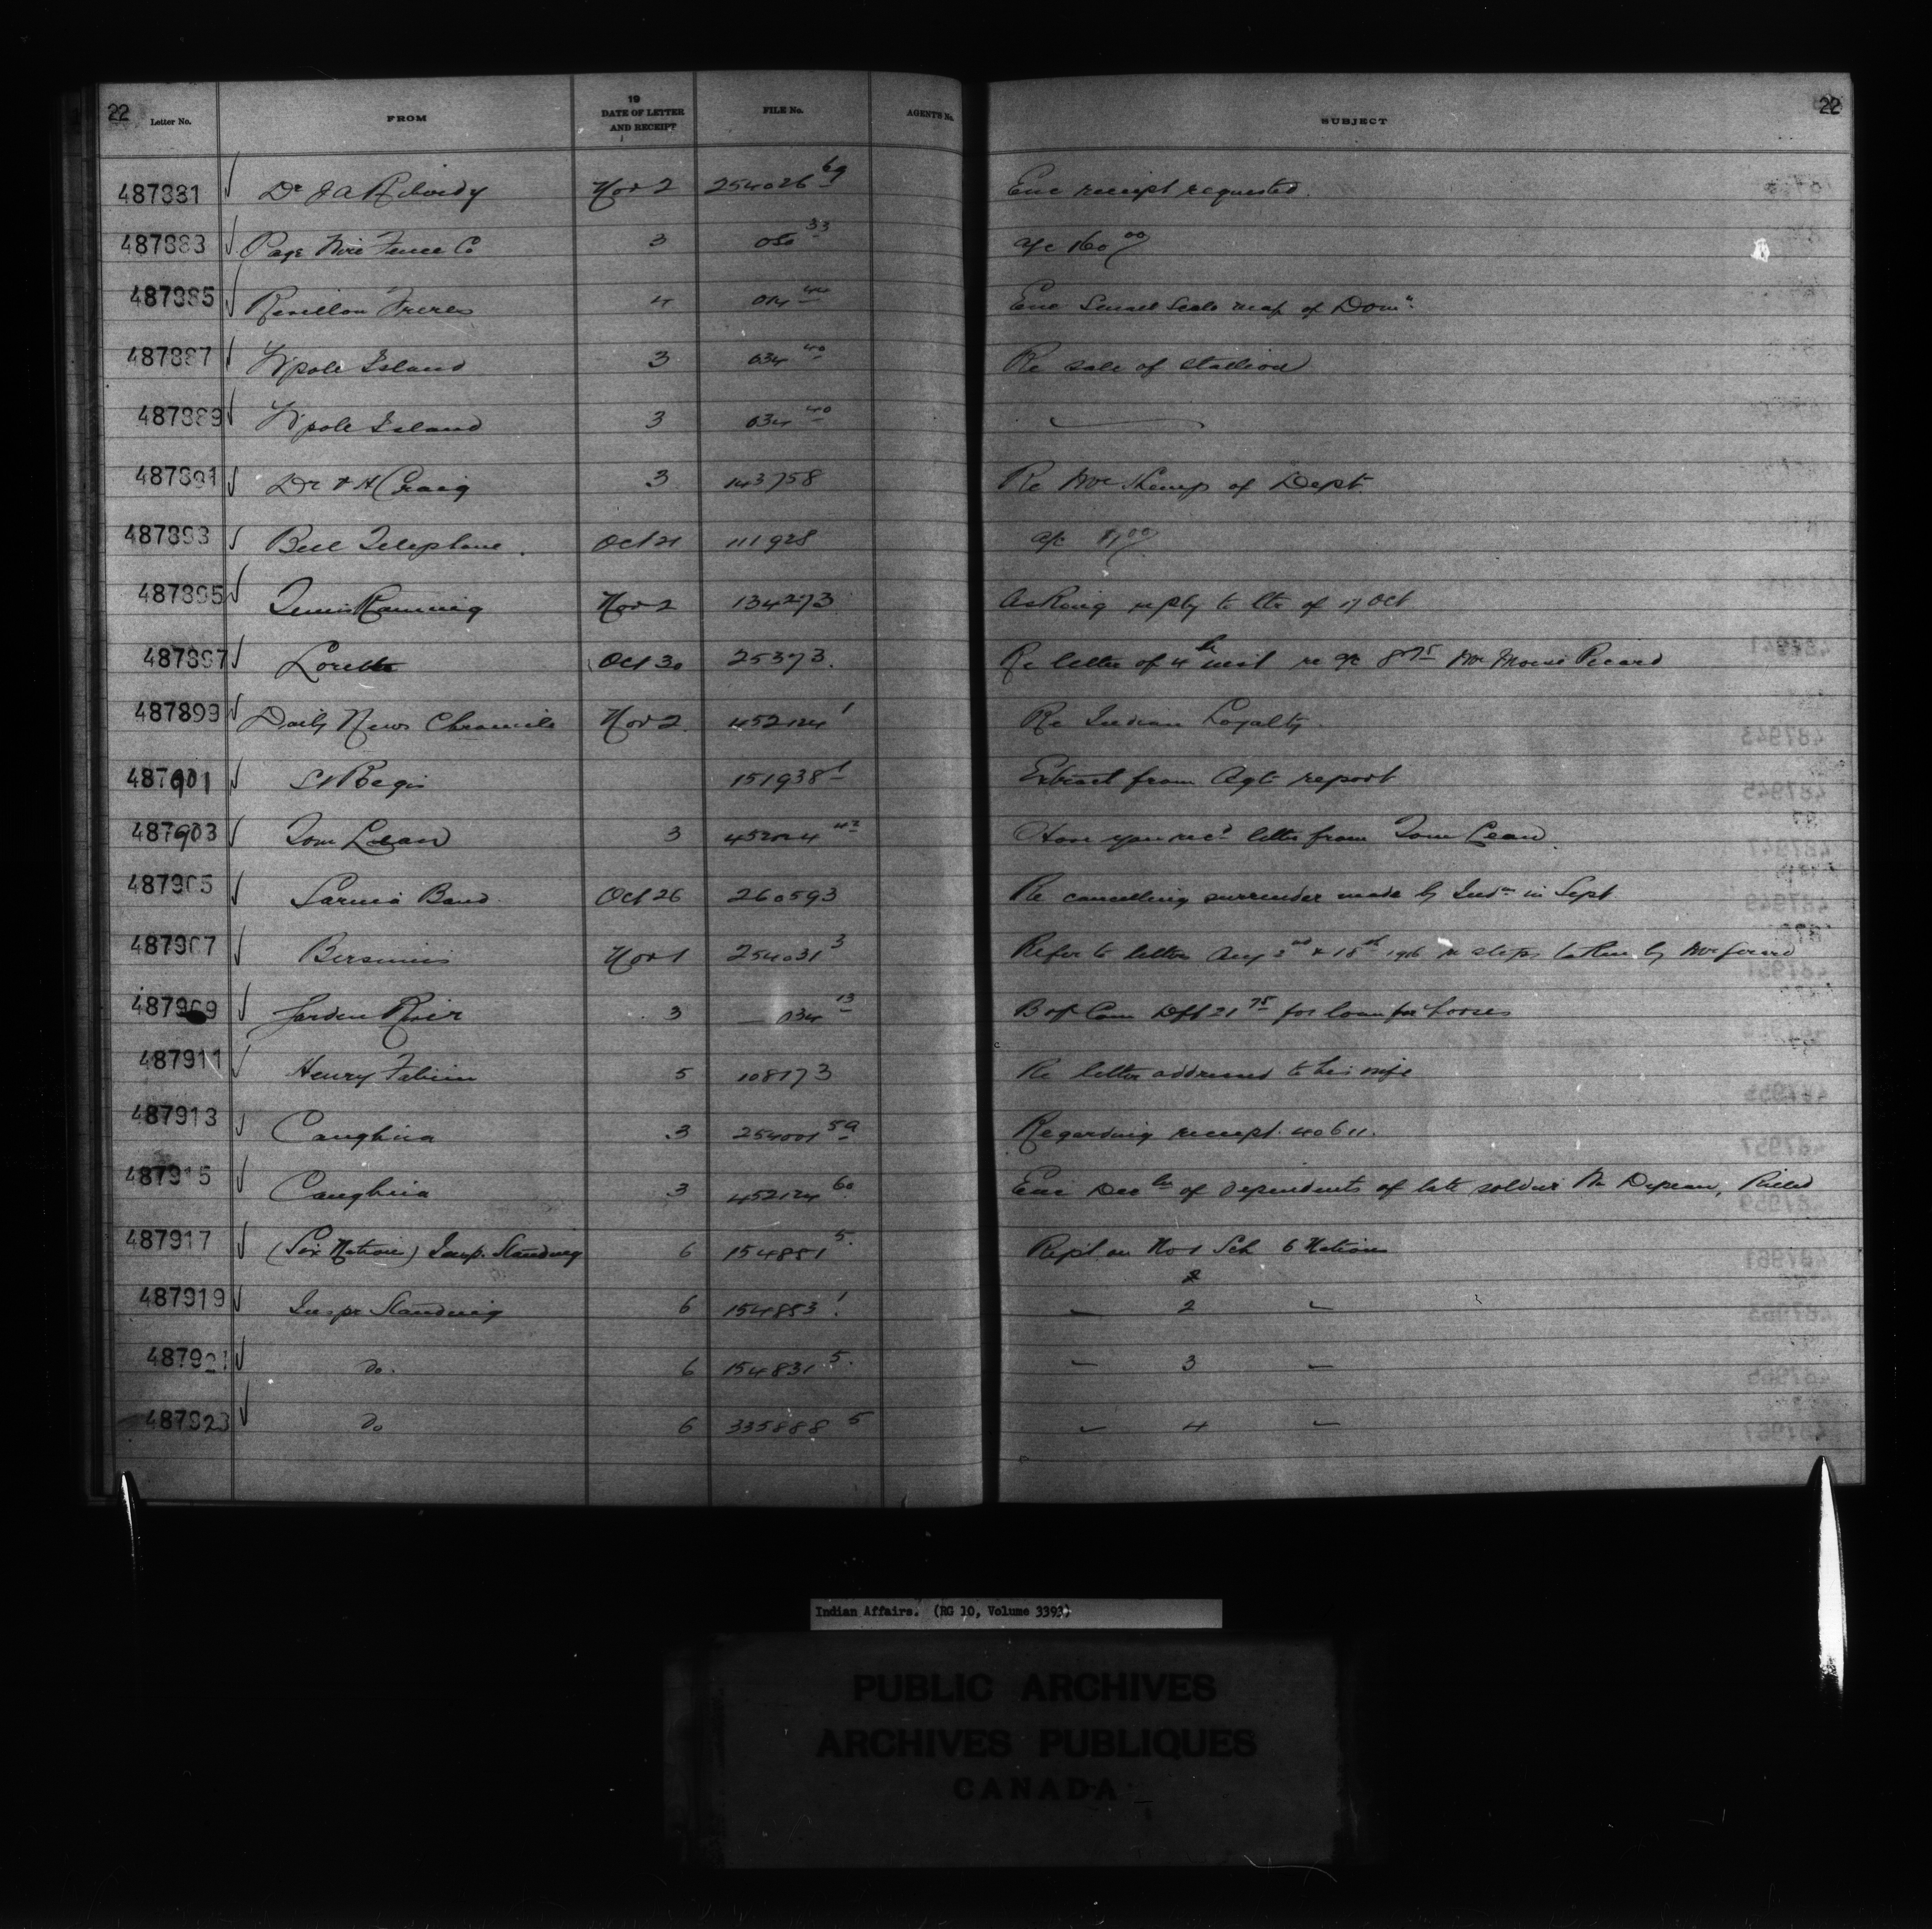 22 22
Letter No. FROM 19 DATE OF LETTER AND RECEIPT FILE No. AGENT'S No. SUBJECT
487881 Dr J A Nov 2 254026 69 Enc receipt requested.
487883 Page Wire Fence Co 3 33 a/c 160 00
487885 Revillon Freres 4 014 44 Enc Small Scale map of Domn
487887 Wpole Island 3 034 40 Re sale of stallion
487889 Wpole Island 3 034 40
487891 Dr Craig 3 143758 Re of Dept.
487893 Bell Telephone. Oct 21 111928 a/c
487895 Nov 2 134273 Asking reply to ltr of 17 Oct
487897 Lorette Oct 30 25373. Re letter of 4th inst re a/c 8 75 Mr Moise Picard
487899 Daily News Chronicle Nov 2 452124 1 Re Indian Loyalty
487901 St Regis 151938 1 Extract from Agts report
487903 Tom Lean 3 42 Have you recd letter from Tom Lean.
487905 Sarnia Band Oct 26 260593 Re cancelling surrender made by Inds in Sept
487907 Bersimis Nov 1 254031 3 Refer to letters Aug 3rd & 18th 1916 re steps taken by Mr
487909 Garden River 3 034 13 B of Com Dft 21 75 for loan for horses
487911 Henry Fabien 5 108173 Re letter addressed to his wife
487913 Caughna 3 254001 59 Regarding receipt 40611.
487915 Caughna 3 452124 60 Enc of dependents of late soldier Killed
487917 (Six Nation) Insp. Standing 6 154881 5. Rept on No 1 Sch 6 Nations
487919 Inspr Standing 6 154883 1 — 2 —
487921 Do. 6 154831 5. — 3 —
487923 Do 6 335888 5 — 4 —
Indian Affairs. (RG 10, Volume 3393)
PUBLIC ARCHIVES
ARCHIVES PUBLIQUES
CANADA